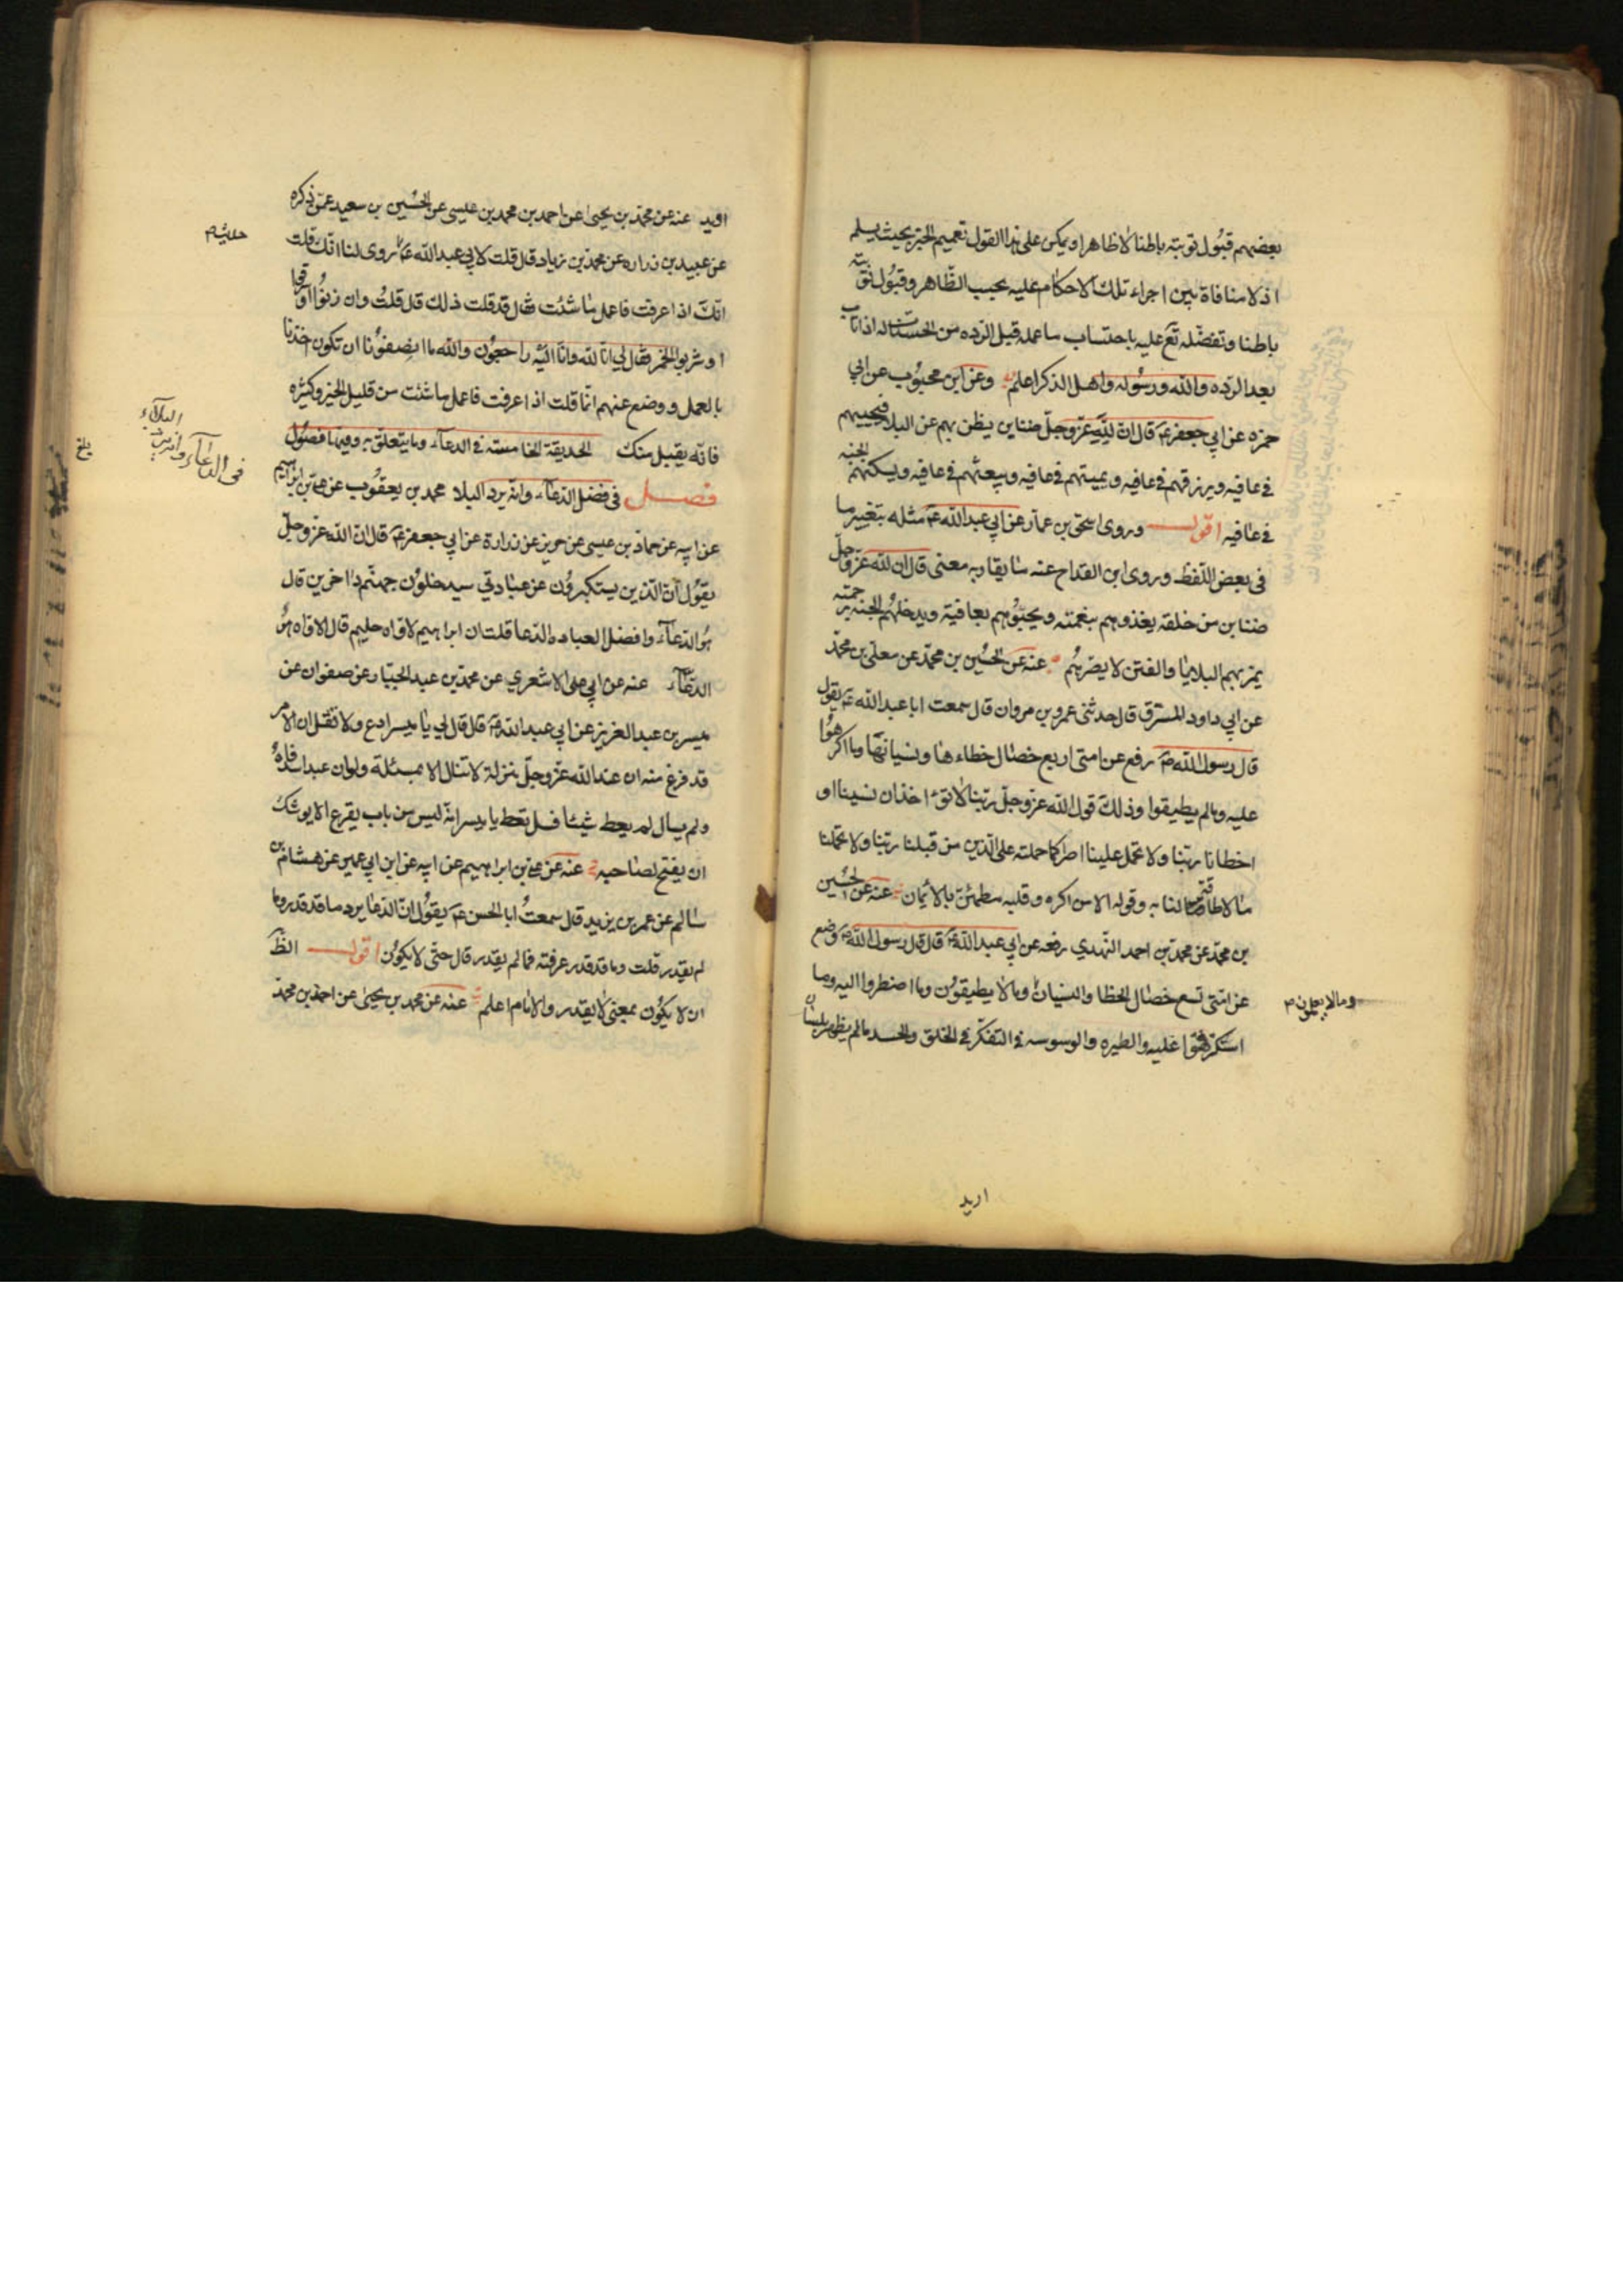 بعضهم قبول توبته باطنا لا ظاهرا ويمكن على هذا القول تعميم الخبر بحيث يسلم
اذ لا منافاة بين اجراء تلك الاحكام عليه بحسب الظاهر وقبول توبته
باطنا وتفضله تع عليه باحتساب ما عمله قبل الرده من الحسنات له اذا تاب
بعد الرده والله ورسوله واهل الذكر اعلم وعن ابن محبوب عن ابي
حمزه عن ابي جعفر ع قال ان لله عز وجل ضناين يظن بهم عن البلا فيحييهم
في عافيه ويرزقهم في عافيه ويميتهم في عافيه ويبعثهم في عافيه ويسكنهم الجنه
في عافيه اقول وروى اسحق بن عمار عن ابي عبد الله ع مثله بتغيير ما
في بعض اللفظ وروى ابن القداح عنه ما يقاربه معنى قال ان لله عز وجل
ضناين من خلقه يغذوهم بنعمته ويحبوهم بعافيته ويدخلهم الجنه برحمته
يمر بهم البلايا والفتن لا يضرهم عنه عن الحسين بن محمد عن معلى بن محمد
عن ابي داود المسترق قال حدثني عمرو بن مروان قال سمعت ابا عبد الله ع يقول
قال رسول الله ص رفع عن امتي اربع خصال خطاءها ونسيانها وما اكرهوا
عليه وما لم يطيقوا وذلك قول الله عز وجل ربنا لا تؤاخذنا ان نسينا او
اخطانا ربنا ولا تحمل علينا اصرا كما حملته على الذين من قبلنا ربنا ولا تحملنا
ما لا طاقة لنا به وقوله الا من اكره وقلبه مطمئن بالايمان عنه عن الحسين
بن محمد عن محمد بن احمد النهدي رفعه عن ابي عبد الله ع قال قال رسول الله ص وضع
عن امتي تسع خصال الخطا والنسيان وما لا يطيقون وما اضطروا اليه وما
وما لا يعلمون م
استكرهوا عليه والطيره والوسوسه في التفكر في الخلق والحسد ما لم يظهر بلسان
اويد
اويد عنه عن محمد بن يحيى عن احمد بن محمد بن عيسى عن الحسين بن سعيد عمن ذكره
عن عبيد بن زراره عن محمد بن زياد قال قلت لابي عبد الله ع روى لنا انك قلت
حديث م
انك اذا عرفت فاعمل ما شئت فقال قد قلت ذلك قال قلت وان زنوا او سرقوا
او شربوا الخمر فقال لي انا لله وانا اليه راجعون والله ما انصفونا ان تكون اخذنا
بالعمل ووضع عنهم انما قلت اذا عرفت فاعمل ما شئت من قليل الخير وكثيره
فانه يقبل منك الحديقة الخامسة في الدعاء وما يتعلق به وفيها فصول
في الدعاء وانه يرد البلاء
بلغ
فصل في فضل الدعاء وانه يرد البلا محمد بن يعقوب عن علي بن ابراهيم
عن ابيه عن حماد بن عيسى عن حريز عن زرارة عن ابي جعفر ع قال ان الله عز وجل
يقول ان الذين يستكبرون عن عبادتي سيدخلون جهنم داخرين قال
هو الدعاء وافضل العباده الدعا قلت ان ابراهيم لاواه حليم قال الاواه هو
الدعاء عنه عن ابي علي الاشعري عن محمد بن عبد الجبار عن صفوان عن
ميسر بن عبد العزيز عن ابي عبد الله ع قال قال لي يا ميسر ادع ولا تقل ان الامر
قد فرغ منه ان عند الله عز وجل منزلة لا تنال الا بمسئلة ولو ان عبدا سد فاه
ولم يسال لم يعط شيئا فسل تعط يا ميسر انه ليس من باب يقرع الا يوشك
ان يفتح لصاحبه عنه عن علي بن ابراهيم عن ابيه عن ابن ابي عمير عن هشام بن
سالم عن عمر بن يزيد قال سمعت ابا الحسن ع يقول ان الدعا يرد ما قد قدر وما
لم يقدر قلت وما قد قدر عرفته فما لم يقدر قال حتى لا يكون اقول الظ
ان لا يكون بمعنى لا يقدر والامام اعلم عنه عن محمد بن يحيى عن احمد بن محمد